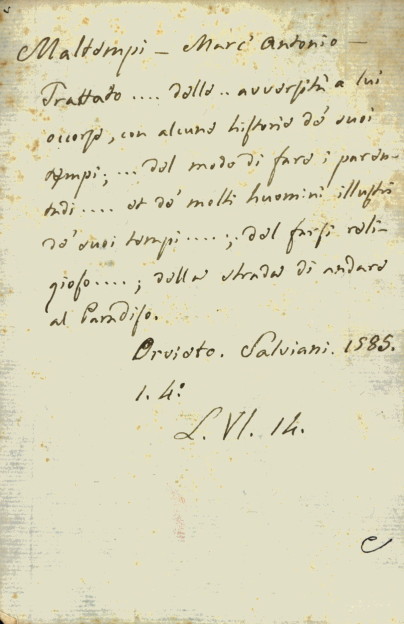 Maltempi - Marc' Antonio -
Trattato .... delle .. avversità a lui
occorse, con alcune historie de' suoi
tempi; ... del modo di fare i paren-
tadi .... et de' molti huomini illustri
de' suoi tempi ....; del farsi reli-
gioso ....; della strada di andare
al Paradiso.
Orvieto. Salviani. 1585.
1. 4.º
L. VI. 14.